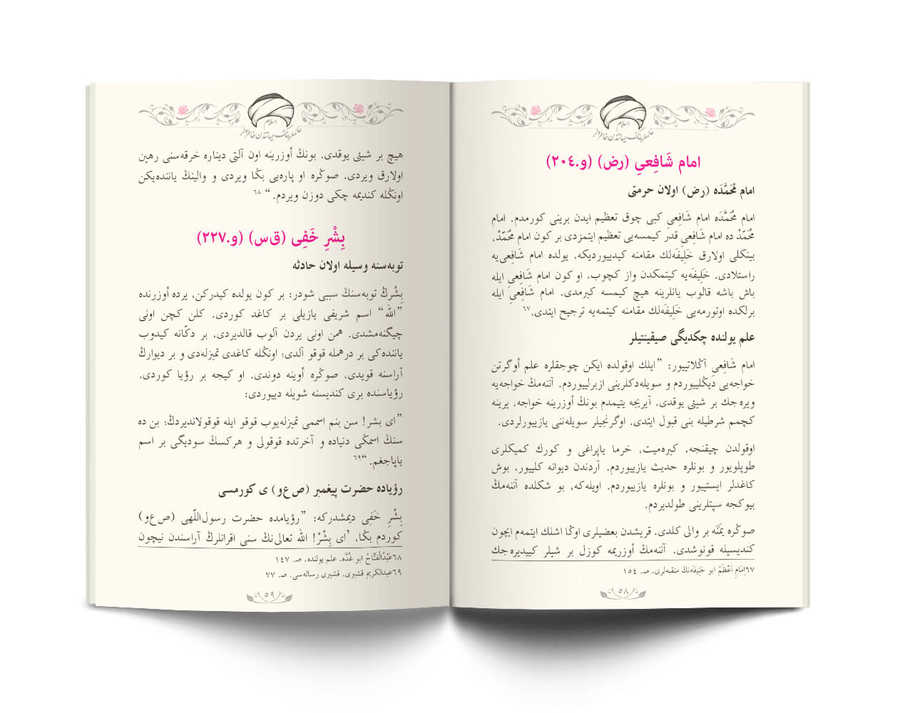 امام شَافِعِي (رض) (و.٢٠٤)
امام مُحَمَّدَه (رض) اولان حرمتی
امام مُحَمَّدَه امام شَافِعِي كبی چوق تعظیم ایدن برینی كورمدم. امام
مُحَمَّدْ ده امام شَافِعِي قدر كیمسه‌یی تعظیم ایتمزدی بر كون امام مُحَمَّدْ،
بینكلی اولارق خَلِیفَه‌نك مقامنه كیدییوردیكه، یولده امام شَافِعِي‌یه
راستلادی. خَلِیفَه‌یه كیتمكدن واز كچوب، او كون امام شَافِعِي ایله
باش باشه قالوب یانلرینه هیچ كیمسه كیرمدی. امام شَافِعِي ایله
برلكده اوتورمه‌یی خَلِیفَه‌نك مقامنه كیتمه‌یه ترجیح ایتدی.٦٧
علم یولنده چكدیگی صیقینتیلر
امام شَافِعِي آڭلاتییور: "ایلك اوقولده ایكن چوجقلره علم أوگرتن
خواجه‌یی دیڭلییوردم و سویله‌دكلرینی ازبرلییوردم. آننه‌مڭ خواجه‌یه
ویره‌جك بر شیئی یوقدی. آیریجه یتیمدم بونڭ أوزرینه خواجه، یرینه
كچمم شرطیله بنی قبول ایتدی. اوگرنجیلر سویله‌ننی یازییورلردی.
اوقولدن چیقنجه، كیره‌میت، خرما یاپراغی و كورك كمیكلری
طوپلویور و بونلره حدیث یازییوردم. آردندن دیوانه كلییور، بوش
كاغدلر ایستییور و بونلره یازییوردم. اویله‌كه، بو شكلده آننه‌مڭ
بیوكجه سپتلرینی طولدیردم.
صوڭره یَمَنَه بر والی كلدی. قریشدن بعضیلری اوڭا اشلك ایتمه‌م ایچون
كندیسیله قونوشدی. آننه‌مڭ أوزریمه كوزل بر شیلر كییدیره‌جك
٦٧امام اَعْظَمْ ابو حَنِیفَه‌نڭ منقبه‌لری، ص. ١٥٤
٥٨
هیچ بر شیئی یوقدی. بونڭ أوزرینه اون آلتی دیناره خرقه‌سنی رهین
اولارق ویردی. صوڭره او پاره‌یی بڭا ویردی و والینڭ یاننده‌یكن
اونڭله كندیمه چكی دوزن ویردم." ٦٨
بِشْرِ خَفِی (ق‌س) (و.٢٢٧)
توبه‌سنه وسیله اولان حادثه
بِشْرِڭ توبه‌سنڭ سببی شودر: بر كون یولده كیدركن، یرده أوزرنده
"اللّٰه" اسم شریفی یازیلی بر كاغد كوردی. كلن كچن اونی
چیگنه‌مشدی. همن اونی یردن آلوب قالدیردی. بر دكّانه كیدوب
یاننده‌كی بر درهمله قوقو آلدی؛ اونڭله كاغدی تمیزله‌دی و بر دیوارڭ
آراسنه قویدی. صوڭره أوینه دوندی. او كیجه بر رؤیا كوردی.
رؤیاسنده بری كندیسنه شویله دییوردی:
"ای بشر! سن بنم اسممی تمیزله‌یوب قوقو ایله قوقولاندیردڭ؛ بن ده
سنڭ اسمڭی دنیاده و آخرتده قوقولی و هركسڭ سودیگی بر اسم
یاپاجغم."٦٩
رؤیاده حضرت پیغمبر (ص‌ع‌و) ی كورمسی
بِشْرِ خَفِی دیمشدركه: "رؤیامده حضرت رسول‌اللّٰهی (ص‌ع‌و)
كوردم بڭا، 'ای بِشْر! اللّٰه تعالی‌نڭ سنی اقرانلرڭ آراسندن نیچون
٦٨عَبْدُالْفَتَّاحْ ابو غُدَّه، علم یولنده، ص. ١٤٧
٦٩عبدالكریم قشیری، قشیری رساله‌سی، ص. ٧٧
٥٩